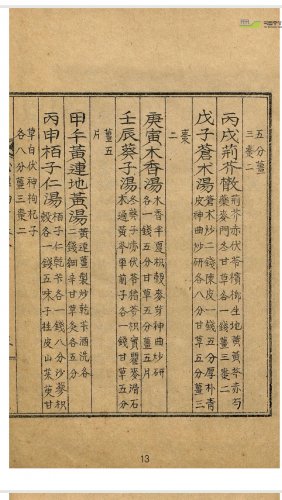 五分薑
三棗二
丙戌荊芥散 荊芥赤茯苓檳榔生地黃黃芩赤芍
藥麥門冬甘草各一錢薑三棗二
戊子蒼木湯 蒼木炒二錢陳皮一錢五分厚朴靑
皮神曲炒研各八分甘草五分薑三
棗
二
庚寅木香湯 木香半夏枳殼麥芽神曲炒研
各一錢五分甘草五分薑五片
壬辰葵子湯 冬葵子赤茯苓猪苓枳實瞿麥滑石
木通黃芩車前子各一錢甘草五分
薑五
片
甲午黃連地黃湯 黃連薑製炒乾芐酒洗各
二錢細辛甘草炙各五分
丙申栢子仁湯 栢子乾芐各一錢八分沙蔘枳
殼各一錢五味子桂皮山茱萸甘
草白茯神枸杞子
各八分薑三棗二
13